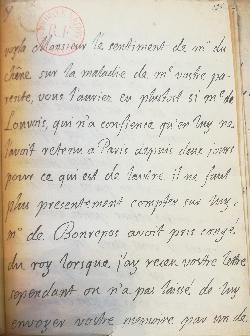 voyla Monsieur le sentiment de mr du
chêne sur la maladie de me vostre pa-
rente, vous l'auriez eu plustost si me de
Louvois, qui n'a confience qu'en luy ne
l'avoit retenu a Paris depuis deux jours
pour ce qui est de l'autre il ne faut
plus presentement compter sur luy.
mr de Bonrepos avoit pris congé
du roy lorsque j'ay receu vostre lettre
cependant on n'a pas laissé de luy
envoyer vostre memoire par un de